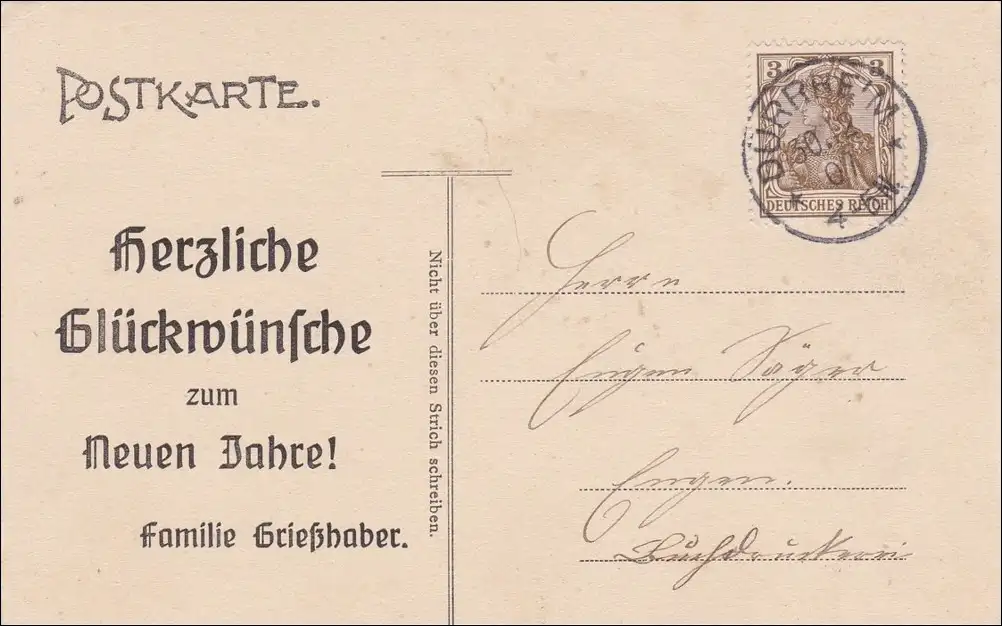 POSTKARTE.
Herzliche
Glückwünsche
zum
Neuen Jahre!
Familie Grießhaber.
Nicht über diesen Strich schreiben.
3 3
DEUTSCHES REICH
DÜRRHEIM
30.
4
Herrn
Eugen Säger
Engen.
Buchdruckerei